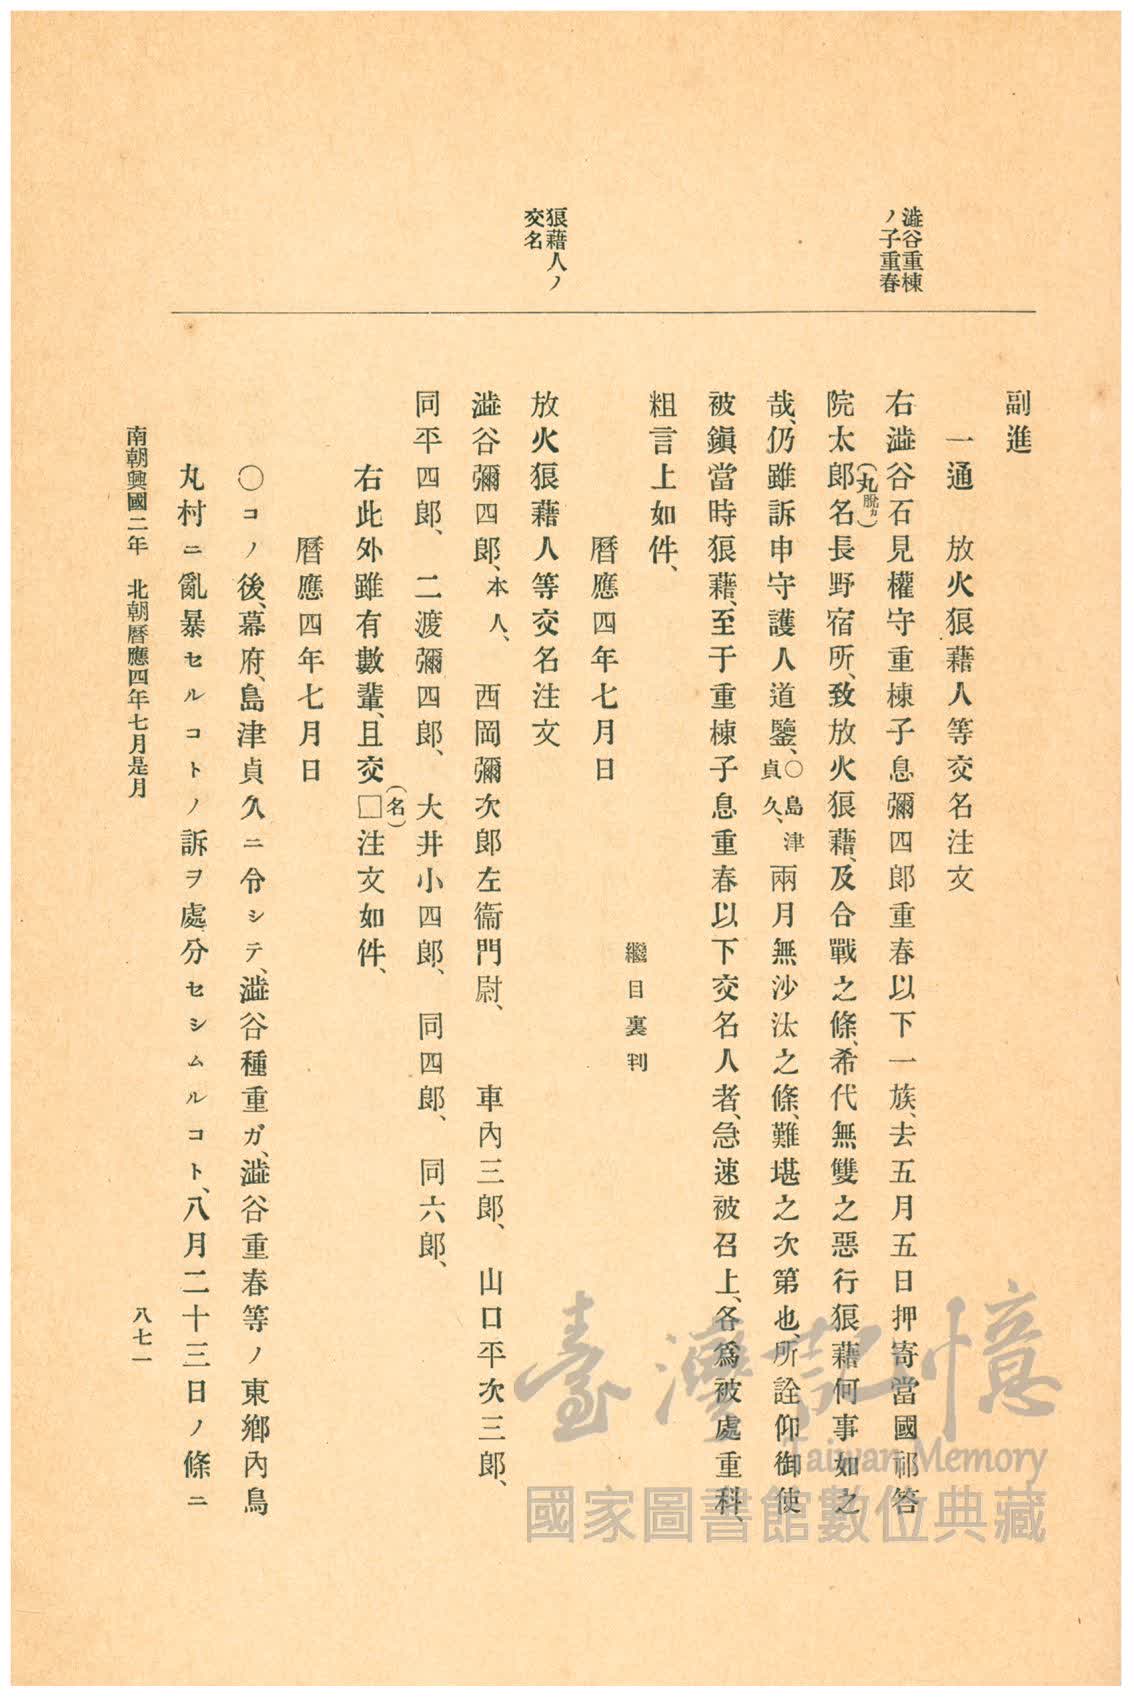 澁谷重棟
ノ子重春
狼藉人ノ
交名
副進
一通　放火狼藉人等交名注文
右澁谷石見權守重棟子息彌四郎重春以下一族、去五月五日押寄當國祁答
院太郎名長野宿所、致放火狼藉、及合戰之條、希代無雙之惡行狼藉何事如之
(丸脫カ)
哉、仍雖訴申守護人道鑒、〇島津貞久、兩月無沙汰之條、難堪之次第也、所詮仰御使
被鎭當時狼藉、至于重棟子息重春以下交名人者、急速被召上、各爲被處重科、
粗言上如件、
繼目裏判
曆應四年七月日
放火狼藉人等交名注文
澁谷彌四郎、本人、　西岡彌次郎左衞門尉、　車內三郎、　山口平次三郎、
同平四郎、　二渡彌四郎、　大井小四郎、　同四郎、　同六郎、
右此外雖有數輩、且交□(名)注文如件、
曆應四年七月日
〇コノ後、幕府、島津貞久ニ令シテ、澁谷種重ガ、澁谷重春等ノ東鄕內鳥
丸村ニ亂暴セルコトノ訴ヲ處分セシムルコト、八月二十三日ノ條ニ
南朝興國二年　北朝曆應四年七月是月
八七一
臺灣記憶
Taiwan Memory
國家圖書館數位典藏